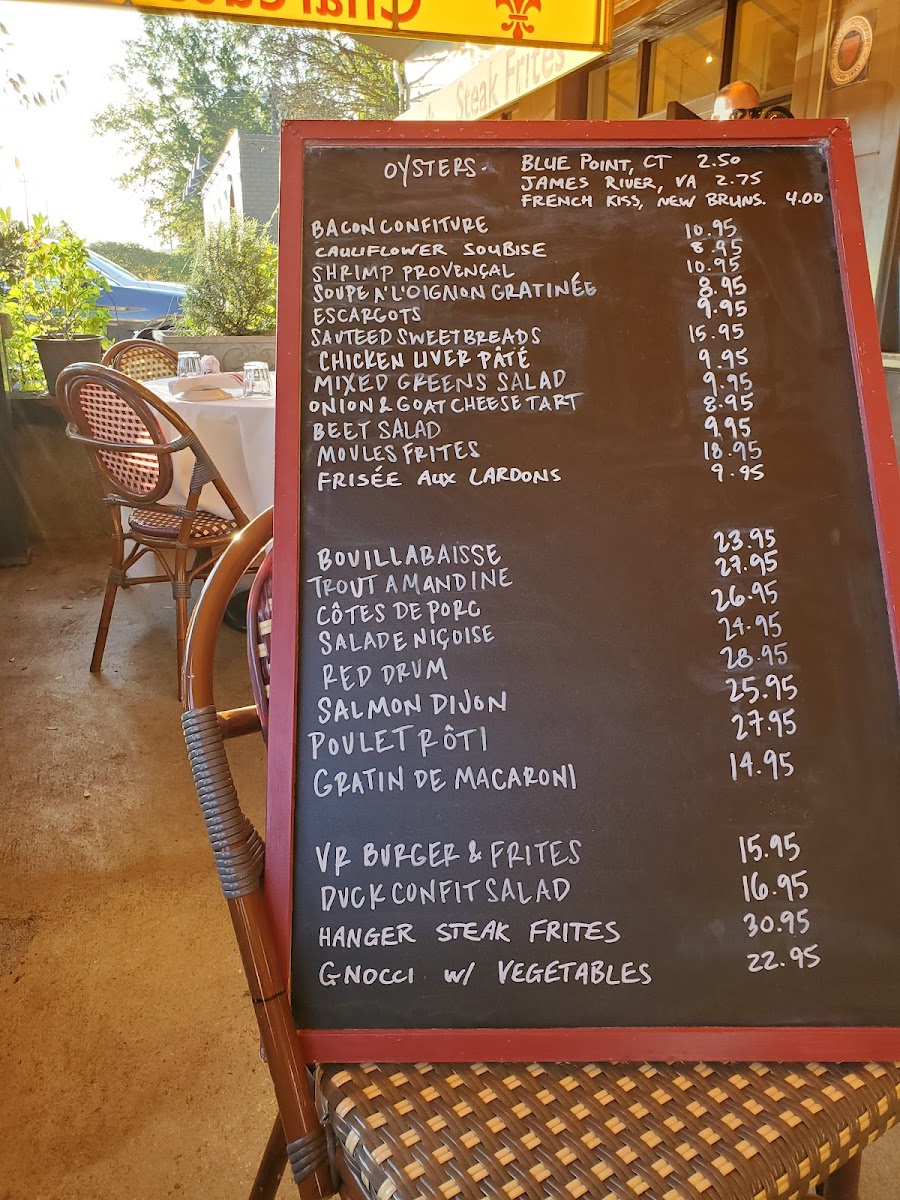 Steak Frites
OYSTERS. BLUE POINT, CT 2.50
JAMES RIVER, VA 2.75
FRENCH KISS, NEW BRUNS. 4.00
BACON CONFITURE 10.95
CAULIFLOWER SOUBISE 8.95
SHRIMP PROVENÇAL 10.95
SOUPE A'L'OIGNON GRATINÉE 8.95
ESCARGOTS 9.95
SAUTEED SWEETBREADS 15.95
CHICKEN LIVER PÂTÉ 9.95
MIXED GREENS SALAD 9.95
ONION & GOAT CHEESE TART 8.95
BEET SALAD 9.95
MOULES FRITES 18.95
FRISÉE AUX LARDONS 9.95
BOUILLABAISSE 23.95
TROUT AMANDINE 27.95
CÔTES DE PORC 26.95
SALADE NIÇOISE 24.95
RED DRUM 28.95
SALMON DIJON 25.95
POULET RÔTI 27.95
GRATIN DE MACARONI 14.95
VR BURGER & FRITES 15.95
DUCK CONFIT SALAD 16.95
HANGER STEAK FRITES 30.95
GNOCCI W/ VEGETABLES 22.95